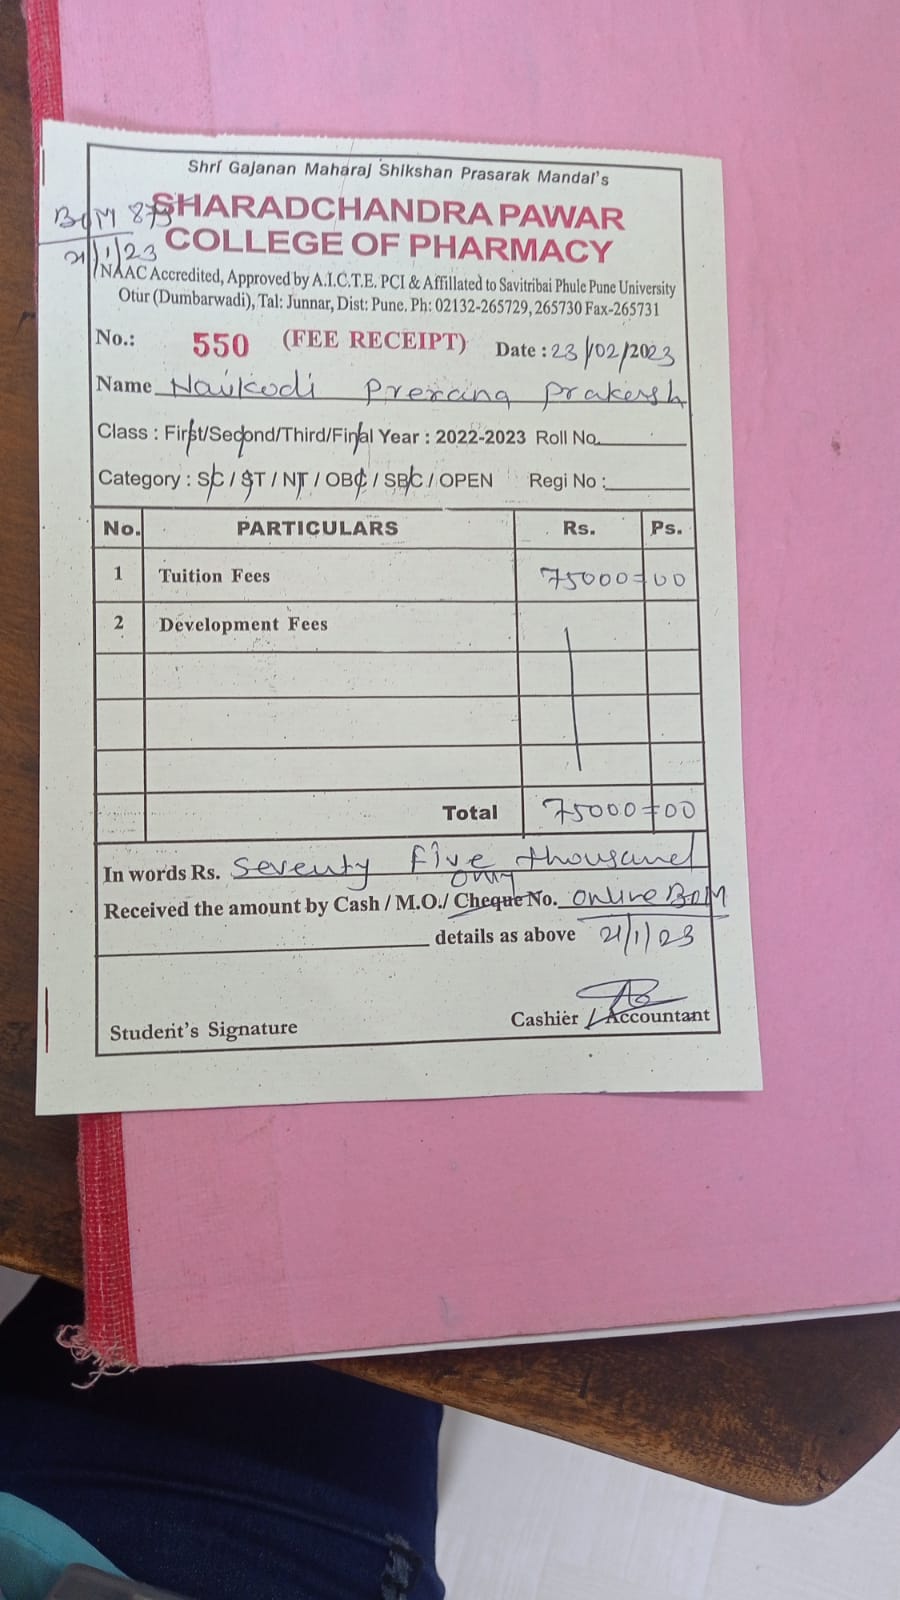 Shri Gajanan Maharaj Shikshan Prasarak Mandal's
SHARADCHANDRA PAWAR
COLLEGE OF PHARMACY
BOM 873
21/1/23
NAAC Accredited, Approved by A.I.C.T.E. PCI & Affillated to Savitribai Phule Pune University
Otur (Dumbarwadi), Tal: Junnar, Dist: Pune. Ph: 02132-265729, 265730 Fax-265731
No.: 550 (FEE RECEIPT) Date : 23/02/2023
Name Naikodi Prerana Prakash
Class : First/Second/Third/Final Year : 2022-2023 Roll No.
Category : SC / ST / NT / OBC / SBC / OPEN Regi No :
No. PARTICULARS Rs. Ps.
1 Tuition Fees 75000=00
2 Development Fees
Total 75000=00
In words Rs. Seventy Five thousand
only
Received the amount by Cash / M.O./ Cheque No. Online BOM
details as above 21/1/23
Student's Signature Cashier / Accountant